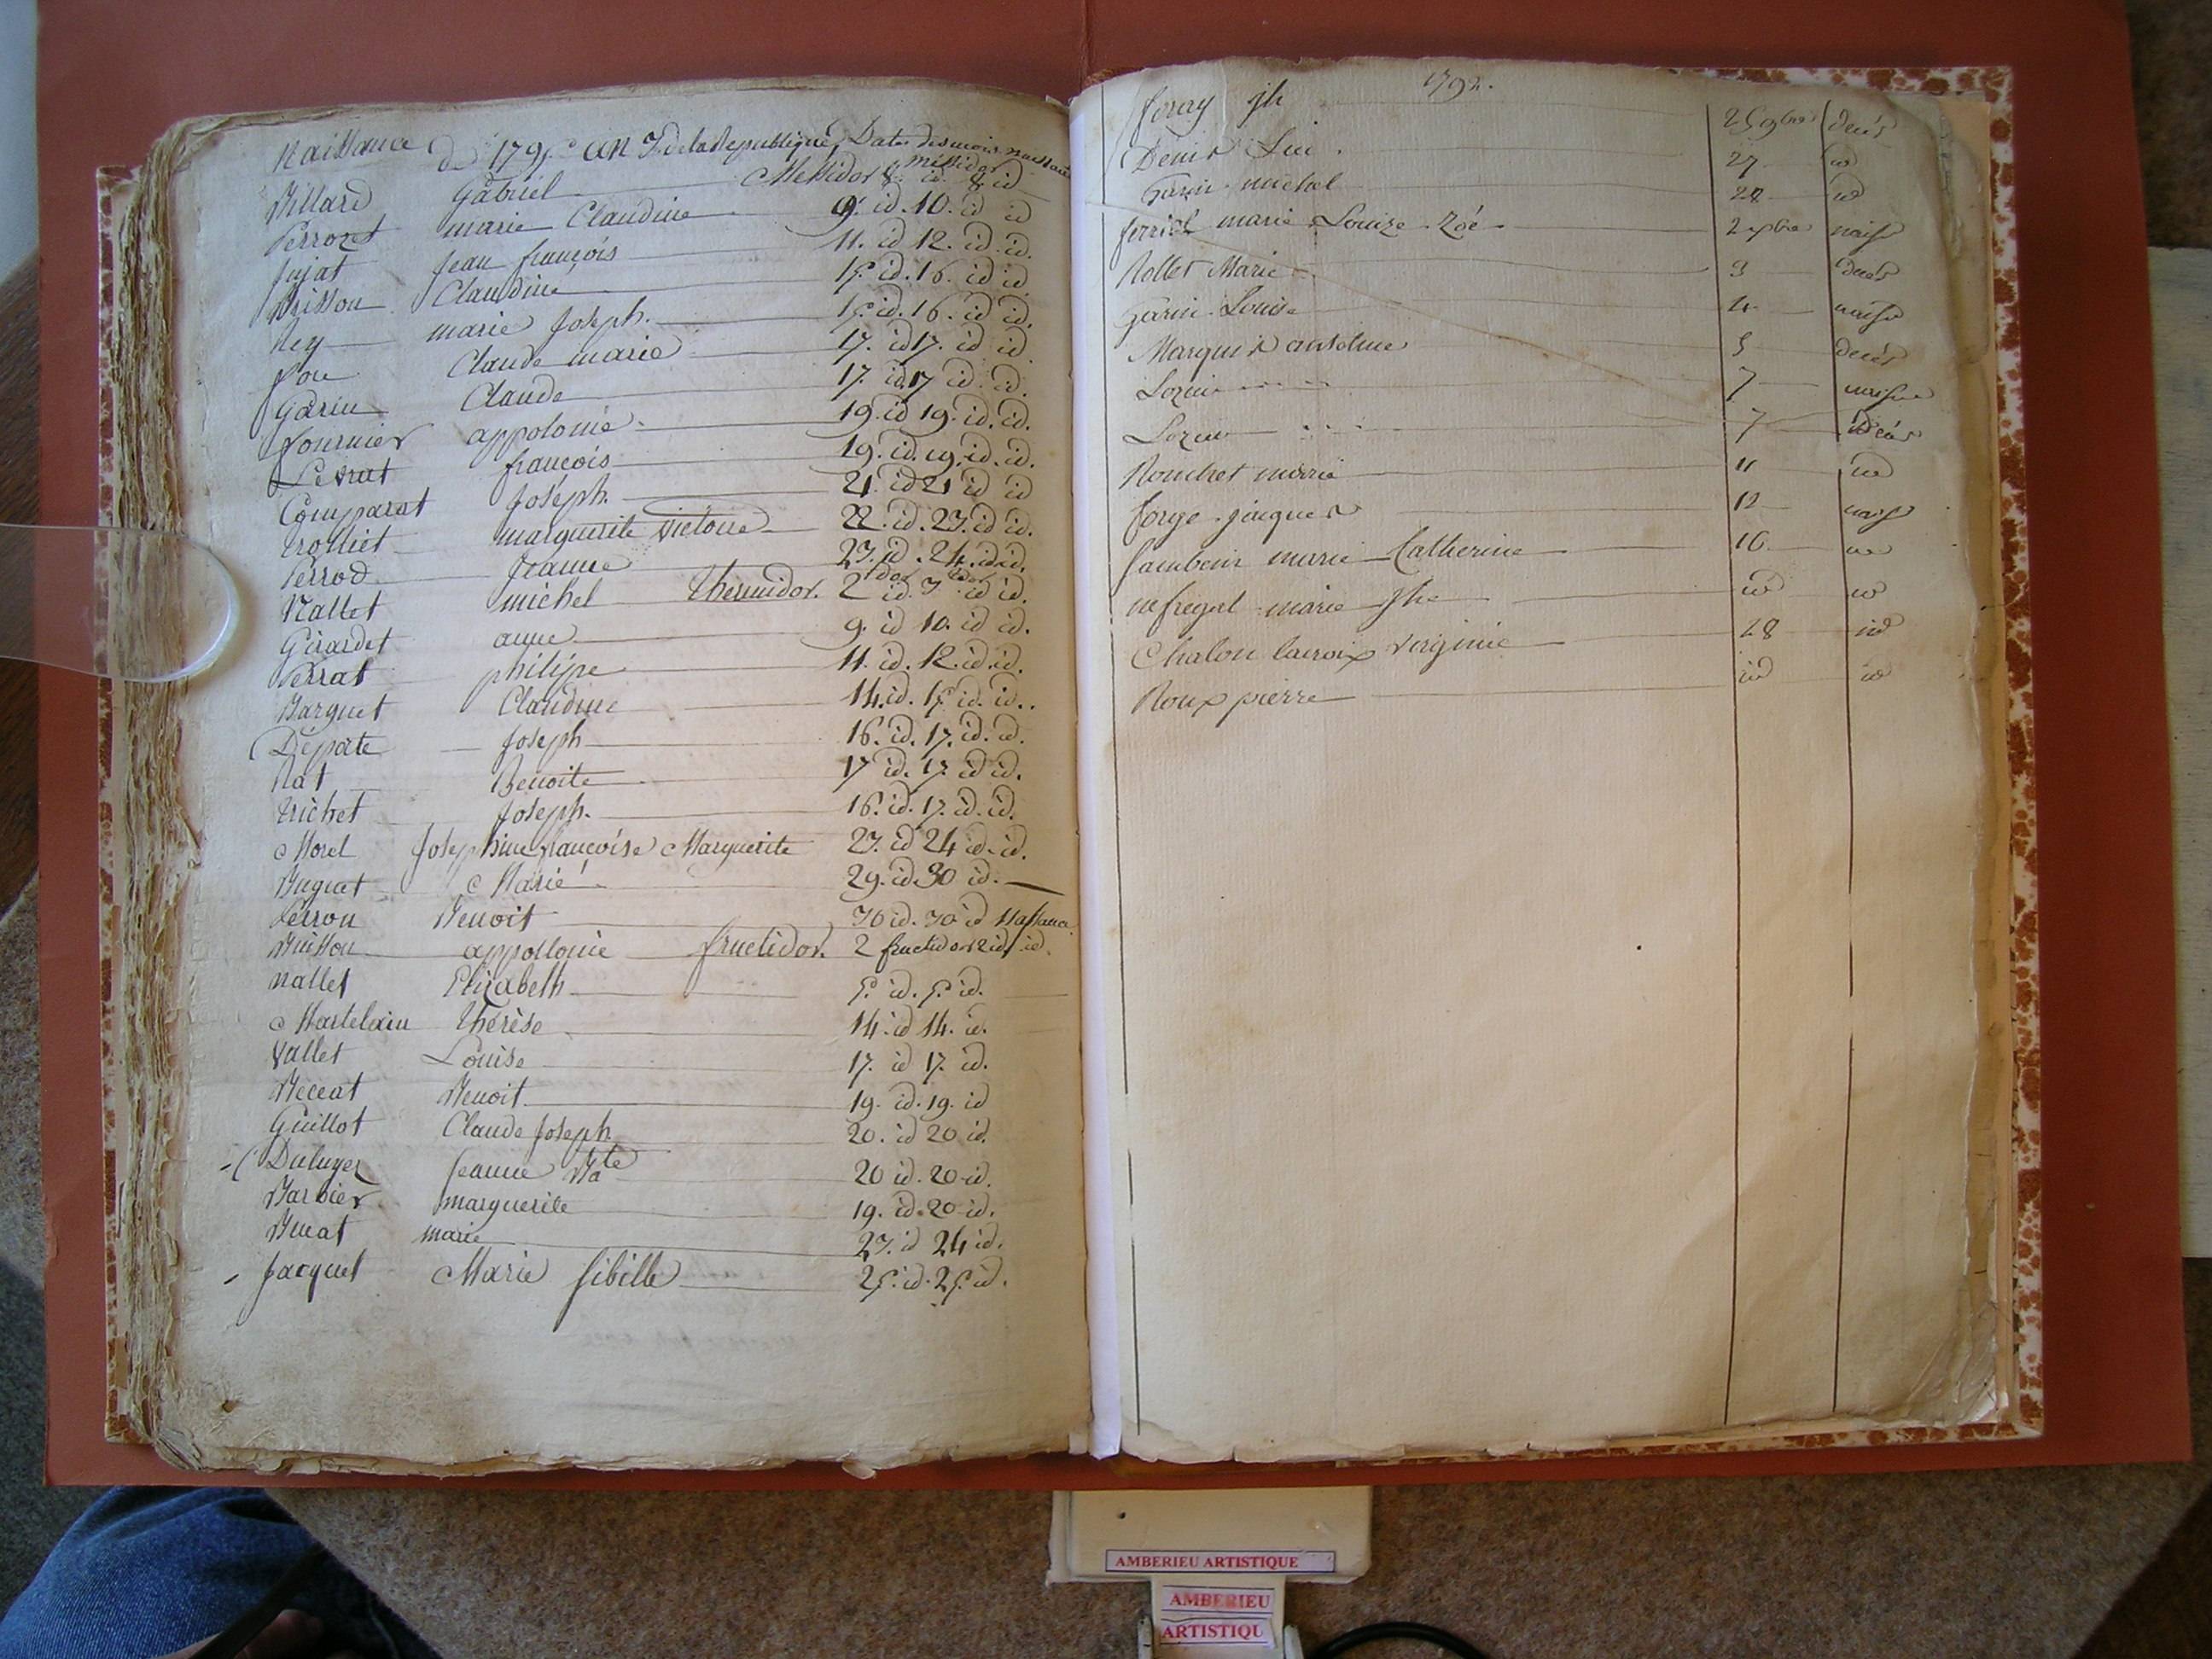 Naissance de 1795 an 3 de la Republique, Dates des mois naissance
Billard Gabriel Messidor 8. id. messidor 8 id
Perrozet marie Claudine 9. id. 10. id id
Jujat Jean françois 11. id 12. id. id.
Brisson Claudine 15. id. 16. id id
Rey marie Joseph. 15. id. 16. id id.
Claude marie 17. id 17. id id
Garin Claude 17. id 17 id. id.
fournier appolonie 19. id 19. id. id.
Levrat françois 19. id. 19. id. id.
Comparat Joseph. 21. id 21 id id
trolliet marguerite Victoire 22. id. 23. id id.
Perrod Jeanne 23. id. 24. id id.
Nallet michel Thermidor. 2 id. 3 id id.
Girardet anne 9. id 10. id id.
Perrat philipe 11. id. 12. id. id.
Barquet Claudine 14. id. 15. id. id..
Départe Joseph 16. id. 17. id. id.
Rat Benoite 17 id. 17. id id.
trichet Joseph. 16. id. 17. id. id.
Morel Josephine françoise Marguerite 23. id 24 id. id.
Bugnat Marie 29. id. 30 id.
Perron Benoit 30 id. 30 id Naissance
Buisson appollonie fructidor. 2 fructidor 2 id. id.
Nallet Elizabeth 5. id. 5. id.
Martelain Thérèse 14. id 14. id.
Vallet Louise 17. id 17. id.
Beccat Benoit 19. id. 19. id
Guillot Claude Joseph 20. id 20 id.
Duluyez Jeanne Bate 20 id. 20 id.
Barbier marguerite 19. id. 20 id.
Bucat marie 23. id 24 id.
Jacquet Marie Sibille 25. id. 25. id.
1792.
foray jh 25 9bre decés
Denis 27 id
Garin michel 28 id
ferriol marie Louize Zoé 2 xbre naisce
Rollet Marie 3 decés
Garin Louise 4 naisce
Marquis antelme 5 decés
Lozin 7 naisce
Lozin 7 decés
Ronchet marie 11 id
forge jacques 12 naisce
Jambent marie Catherine 16 id
nefregat marie Jhe id id
Chalon lacroix virginie 28 id
Roux pierre id id
AMBERIEU ARTISTIQUE
AMBERIEU
ARTISTIQU